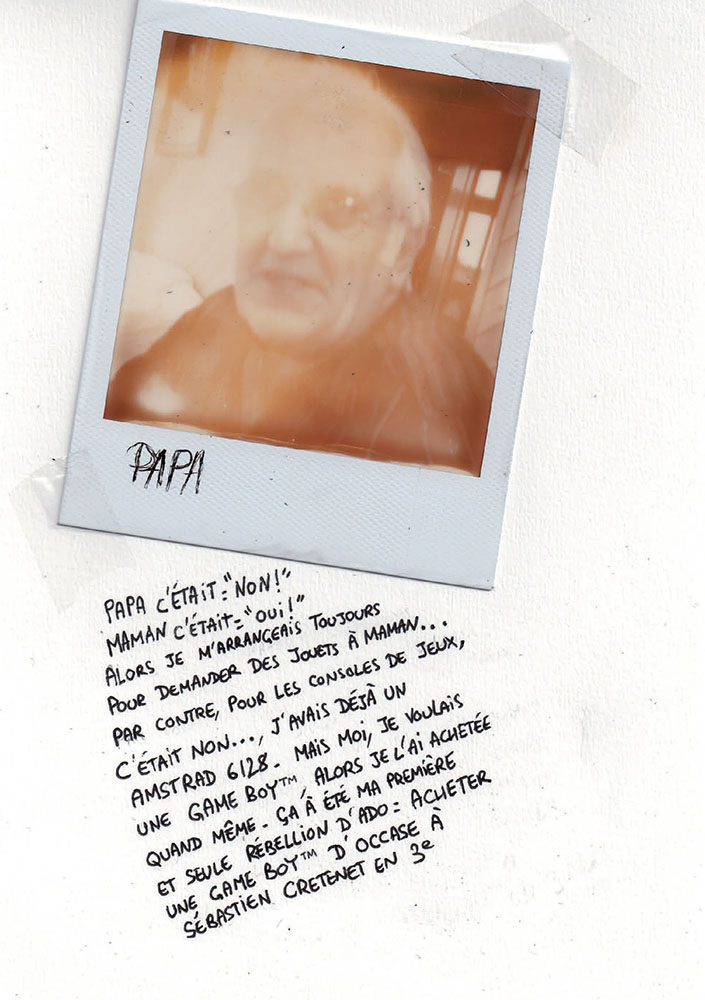 PAPA
PAPA C'ÉTAIT = "NON!"
MAMAN C'ÉTAIT = "OUI!"
ALORS JE M'ARRANGEAIS TOUJOURS
POUR DEMANDER DES JOUETS À MAMAN...
PAR CONTRE, POUR LES CONSOLES DE JEUX,
C'ÉTAIT NON..., J'AVAIS DÉJÀ UN
AMSTRAD 6128. MAIS MOI, JE VOULAIS
UNE GAME BOY™, ALORS JE L'AI ACHETÉE
QUAND MÊME. ÇA À ÉTÉ MA PREMIÈRE
ET SEULE RÉBELLION D'ADO = ACHETER
UNE GAME BOY™ D'OCCASE À
SÉBASTIEN CRETENET EN 3e